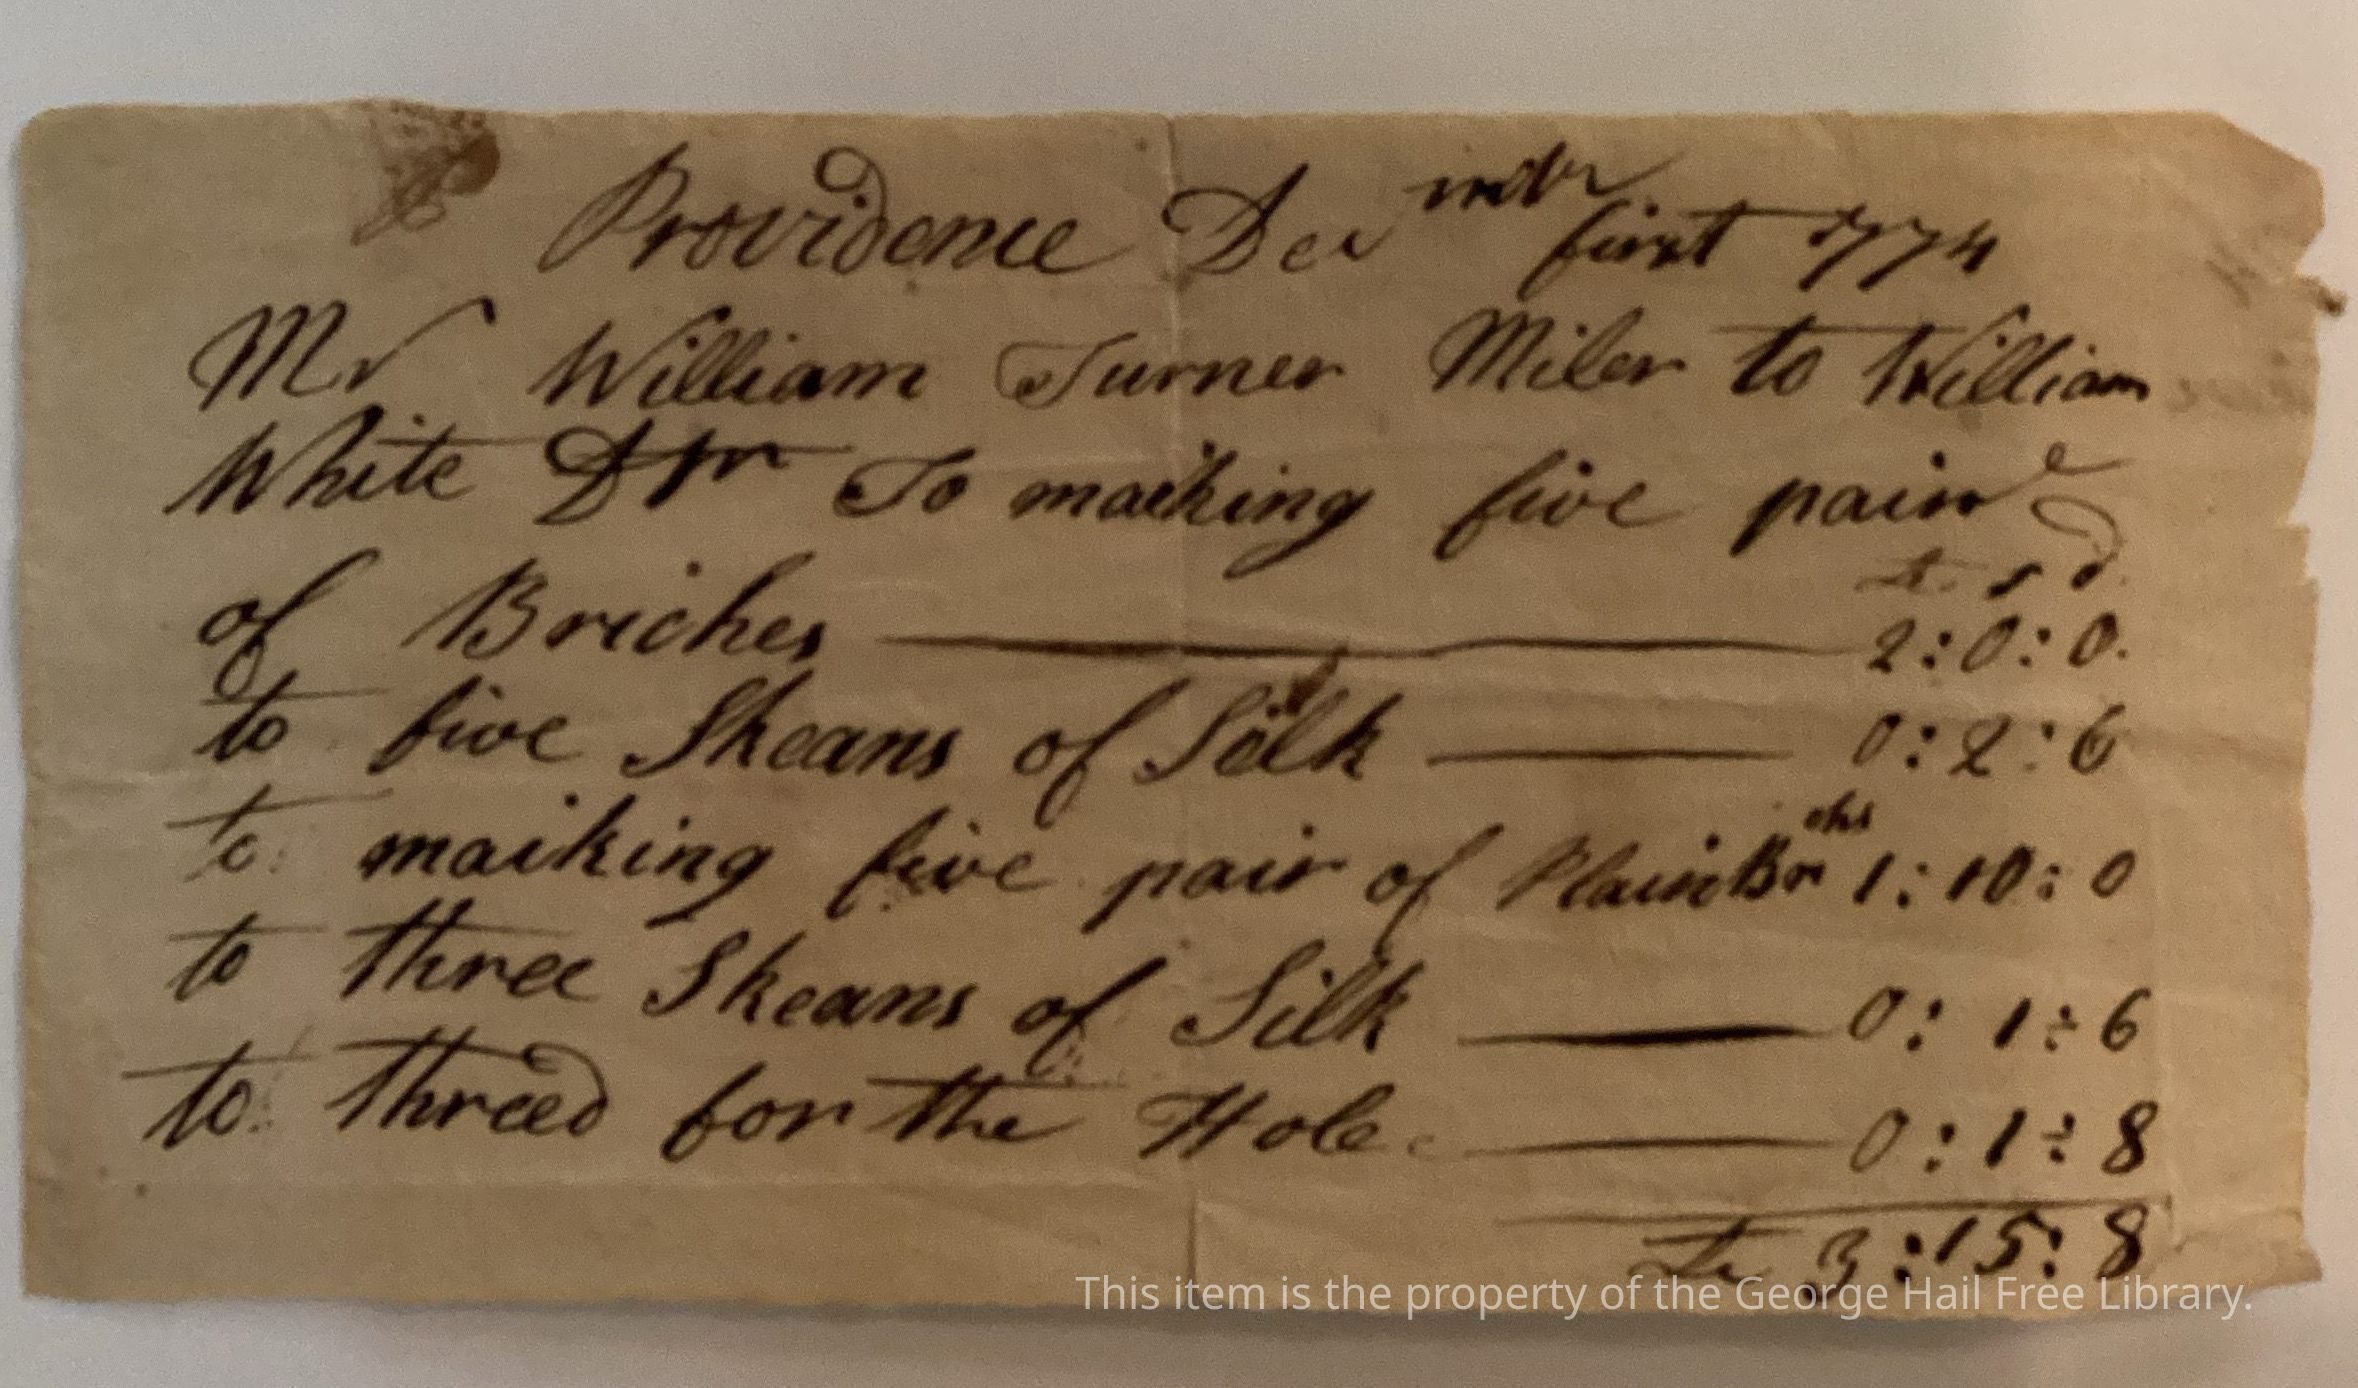 Providence Decmbr first 1774
Mr William Turner Miler to William
White Dr To maiking five paire
£ s d.
of Briches 2:0:0.
to five Skeans of Silk 0:2:6
to maiking five pair of Plain Brchs 1:10:0
to three Skeans of Silk 0:1:6
to threed for the Hole 0:1:8
£ 3:15:8
This item is the property of the George Hail Free Library.